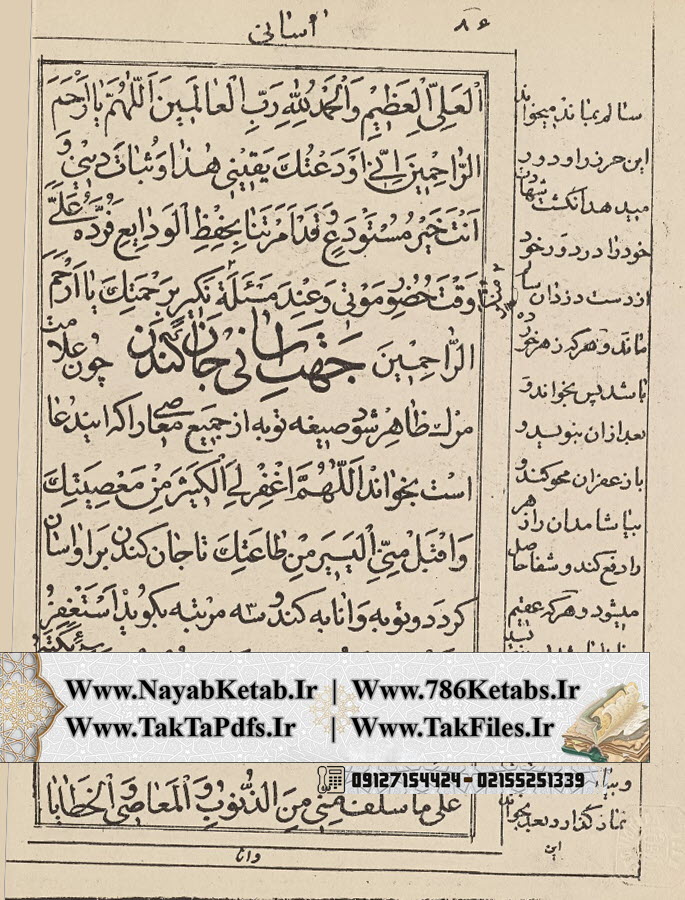 ۸۶
آسانی
اَلْعَلِیِّ الْعَظِیْمِ وَالْحَمْدُ لِلّٰهِ رَبِّ الْعَالَمِیْنَ اَللّٰهُمَّ یٰا اَرْحَمَ
الرّٰاحِمِیْنَ اِنّٰی اَوْدَعْتُكَ یَقِیْنِی هٰذٰا وَ ثُبٰاتَ دِیْنِی وَ
اَنْتَ خَیْرُ مُسْتَوْدَعٍ وَ قَدْ اَمَرْتَنٰا بِحِفْظِ الْوَدٰایِعِ فَرُدَّهُ عَلَیَّ
وَقْتَ حُضُورِ مَوْتی وَ عِنْدَ مَسْئَلَةِ نَکیرٍ بِرَحْمَتِكَ یٰا اَرْحَمَ
الرّٰاحِمِیْنَ جهت آسانی جان کندن چون علامت
مرك ظاهر شود صیغه توبه از جمیع معاصی ادا کند این دعا
است بخواند اَللّٰهُمَّ اغْفِرْ لِیَ الْکَثِیْرَ مِنْ مَعْصِیَتِكَ
وَ اقْبَلْ مِنِّی الْیَسِیْرَ مِنْ طٰاعَتِكَ تا جان کندن بر او اسان
کردد و توبه و انابه کند و سه مرتبه بکوید اَسْتَغْفِرُ
عَلٰی مٰا سَلَفَ مِنِّی مِنَ الذُّنُوبِ وَ الْمَعٰاصِی وَ الْخَطٰایٰا
وانا
سالم بماند میخواند
این حرز را و دور
میدهد انگشت شهادت
خود را در دور خود
از دست دزدان سالم
ماند و هرکه زهر خورده
باشد پس بخواند و
بعد از ان بنویسد و
با زعفران محو کند و
بیاشامد ان زهر
را دفع کند و شفا حاصل
میشود و هرکه عقیم
نماز گذارد و بعد بخواند
این
Www.NayabKetab.Ir | Www.786Ketabs.Ir
Www.TakTaPdfs.Ir | Www.TakFiles.Ir
09127154424 - 02155251339